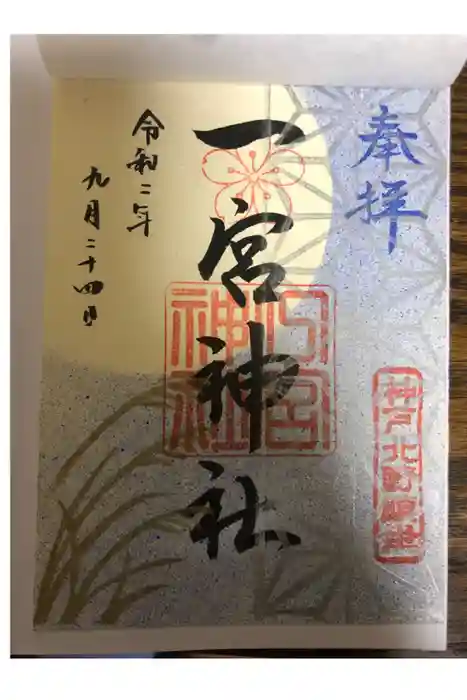 奉拝
神戸北野鎮座
一宮神社
令和二年
九月二十四日